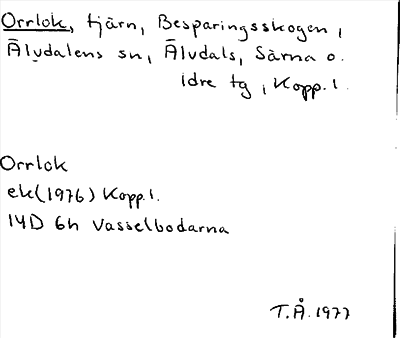 Orrlok, tjärn, Besparingsskogen,
Älvdalens sn, Älvdals, Särna o.
Idre tg, Kopp. l.
Orrlok
ek (1976) Kopp. l.
14D 6h Vasselbodarna
T.Å. 1977